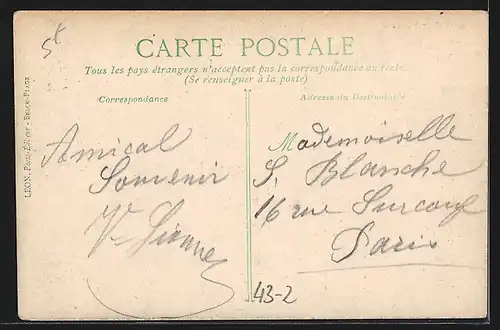 5f
CARTE POSTALE
Tous les pays étrangers n'acceptent pas la correspondance au recto.
(Se renseigner à la poste)
Correspondance
Adresse du Destinataire
LEON, Photo-Editeur - BERCK-PLAGE
Amical
Souvenir
Mademoiselle
S. Blanche
16 rue Surcouf
Paris
43-2